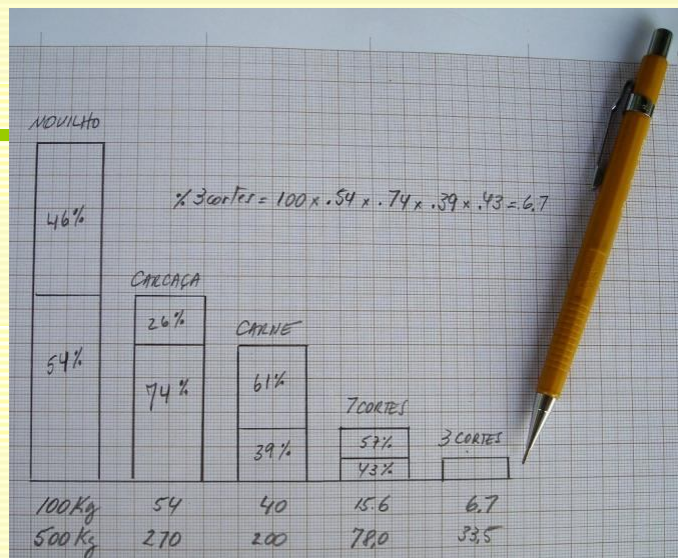 NOVILHO
% 3 cortes = 100 x .54 x .74 x .39 x .43 = 6.7
46%
CARCAÇA
26%
CARNE
54%
74%
61%
7 CORTES
39%
57%
3 CORTES
43%
100 Kg 54 40 15.6 6.7
500 Kg 270 200 78,0 33,5